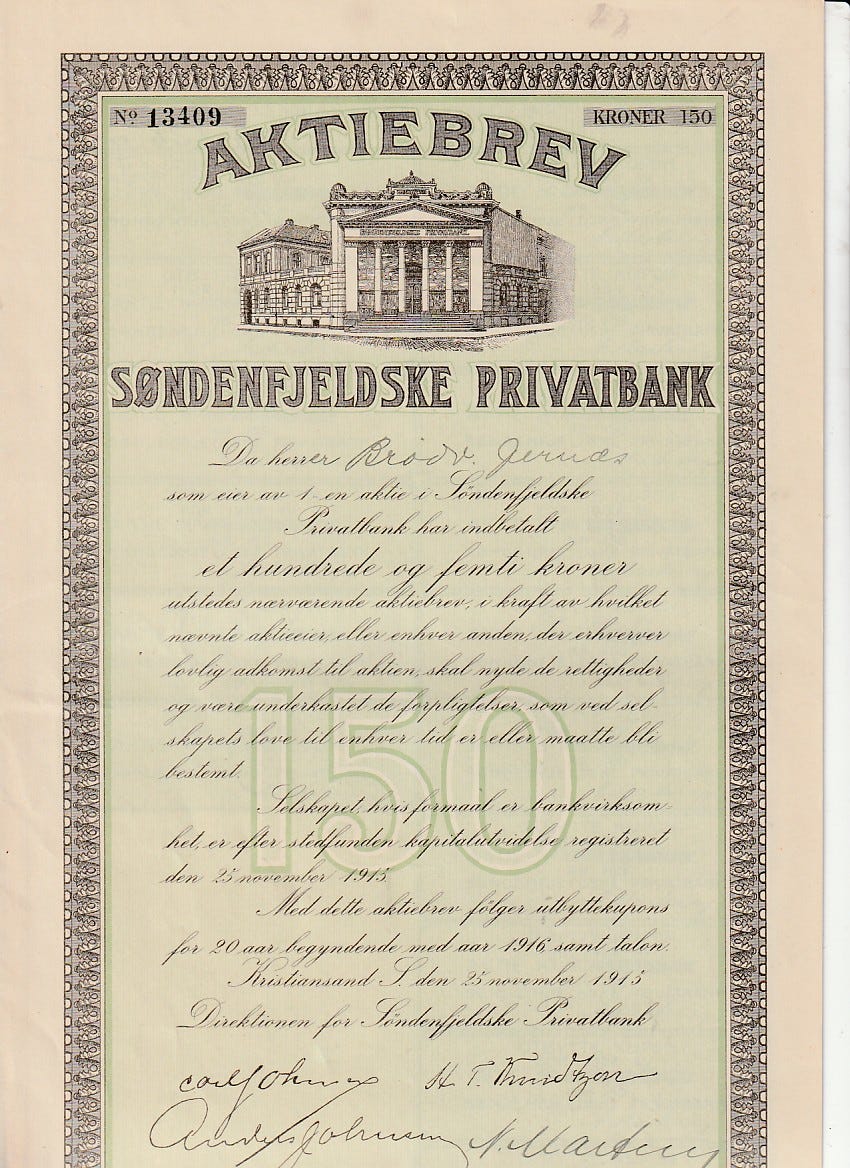 No 13409
KRONER 150
AKTIEBREV
SØNDENFJELDSKE PRIVATBANK
SØNDENFJELDSKE PRIVATBANK
Da herrer Brødr. Jernæs
som eier av 1- en aktie i Söndenfjeldske
Privatbank har indbetalt
et hundrede og femti kroner
utstedes nærværende aktiebrev, i kraft av hvilket
nævnte aktieeier, eller enhver anden, der erhverver
lovlig adkomst til aktien, skal nyde de rettigheder
og være underkastet de forpligtelser, som ved sel-
skapets love til enhver tid er eller maatte bli
bestemt.
150
Selskapet, hvis formaal er bankvirksom-
het, er efter stedfunden kapitalutvidelse registreret
den 25 november 1915.
Med dette aktiebrev fölger utbyttekupons
for 20 aar begyndende med aar 1916, samt talon.
Kristiansand S. den 25 november 1915
Direktionen for Söndenfjeldske Privatbank
H. T. Knudtzon
Anders Johnsen